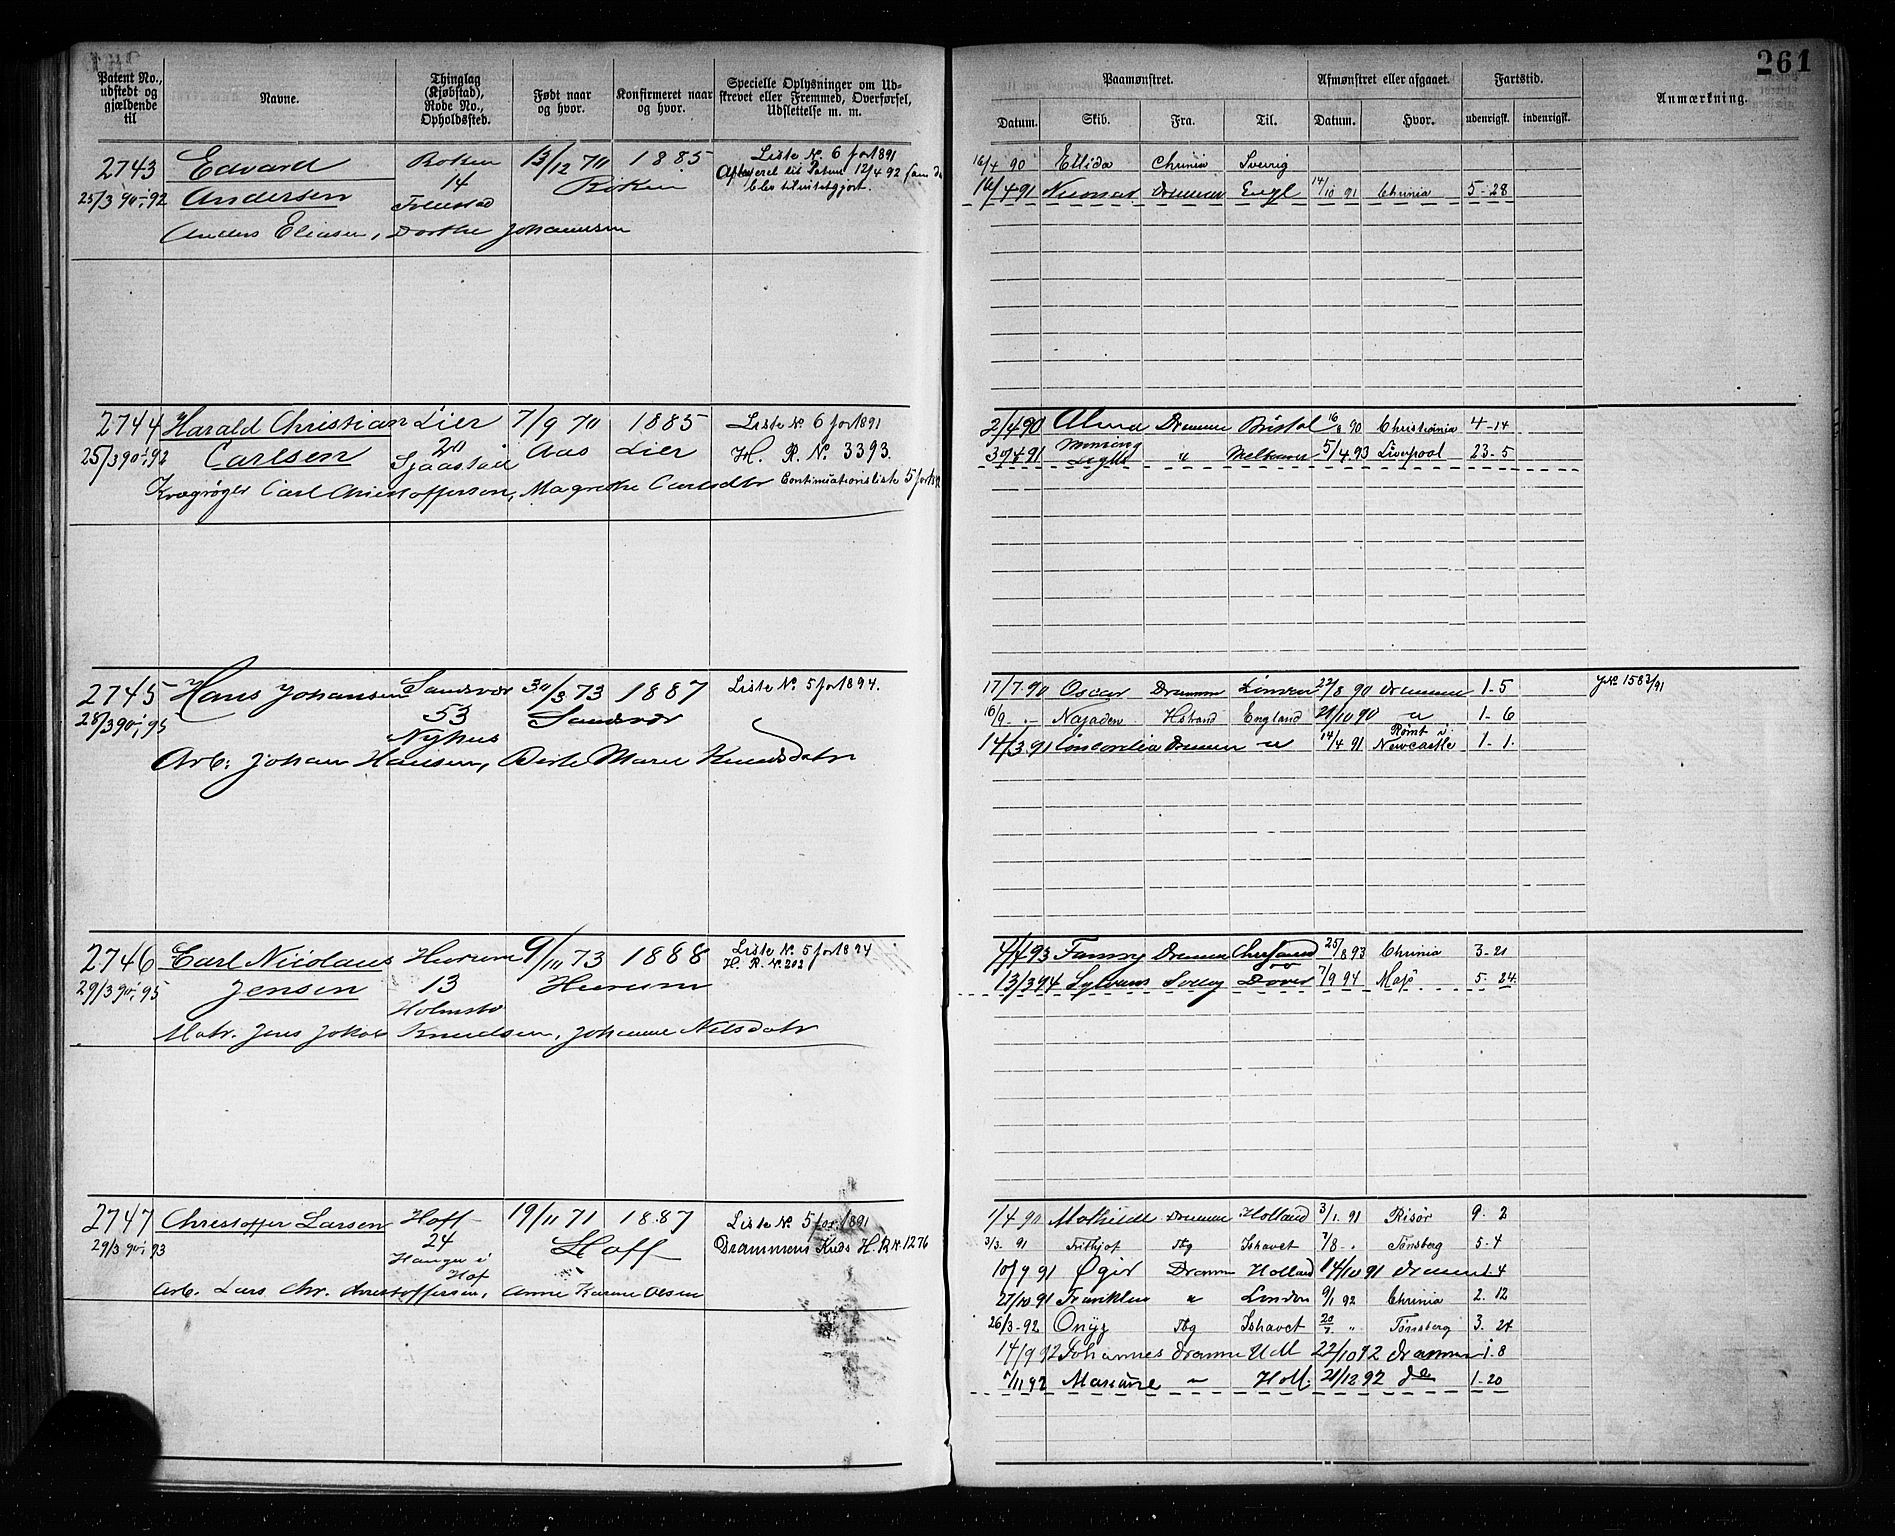 261
Patent No., udstedt og gjældende til
Navne.
Thinglag (Kjøbstad), Rode No., Opholdssted.
Født naar og hvor.
Konfirmeret naar og hvor.
Specielle Oplysninger om Udskrevet eller Fremmed, Overførsel, Udslettelse m. m.
Paamønstret.
Afmønstret eller afgaaet.
Fartstid.
Anmærkning.
Datum. Skib. Fra. Til. Datum. Hvor. udenrigsk. indenrigsk.
2743 Edvard Røken 13/12 70 1885 Liste No. 6 for 1891
25/3 90-92 Andersen 14 Røken 12/4 92
blev tilintetgjort.
Anders Eliasen, Dorthe Johannesen
16/4 90 Ellida Chrinia Sverig
16/4 91 Drammen Engl 14/10 91 Chrinia 5-28
2744 Harald Christian Lier 7/9 70 1885 Liste No 6 for 1891
25/3 90-92 Carlsen 20 Aas Lier H. R. No. 3393.
Sjaastad
Carl Christoffersen, Magrethe Carlsdtr Continuationsliste 5 for
2/4 90 Alma Dramme Bristol 16/8 90 Christiania 4-14
30/4 91 Morning Light " Melbourne 5/4 93 Liverpool 23-5
2745 Hans Johansen Sandsvær 30/3 73 1887 Liste No. 5 for 1894.
28/3 90-95 53 Sandsvær
Nyhus
Arb: Johan Hansen, Birte Marie Knudsdatr
17/7 90 Oscar Dramm 27/8 90 Dramme 1-5
16/9 - Najaden Hstrand England 21/10 90 " 1-6
14/3 91 Concordia Drammen " 14/4 91 Rømt i Newcastle 1-1.
2746 Carl Nicolaus Hurum 9/11 73 1888 Liste No. 5 for 1894
H. R. No. 202
29/3 90-95 Jensen 13 Hurum
Holmsbo
Matr. Jens Jakob Knudsen, Johanne Nilsdatr
4/4 93 Fanny Dramme 25/8 93 Chrinia 3-21
13/3 94 Dover 7/9 94 5-24.
2747 Christoffer Larsen Hoff 19/11 71 1887 Liste No. 5 for 1891
29/3 90-93 24 Hoff Drammens Kreds H. R. No 1276
i Hof
Arb. Lars Chr. Christoffersen, Anne Karine Olsen
1/4 90 Mathilde Dramme Holland 3/1. 91 Risør 9-2
3/3. 91 Frithjof Tbg Ishavet 7/8 - . Tønsberg 5-4
10/9 91 Øgir Dramm Holland 14/10 91 Dramm 1.4
27/10 91 Franklin " London 9/1 92 Chrinia 2.12
26/3-92 Onyx Tbg Ishavet 20/7 " Tønsberg 3.24
14/9 92 Johannes Dramme 22/10 92 Dramme 1.8
7/11 92 " Holl. 21/12 92 do 1-20